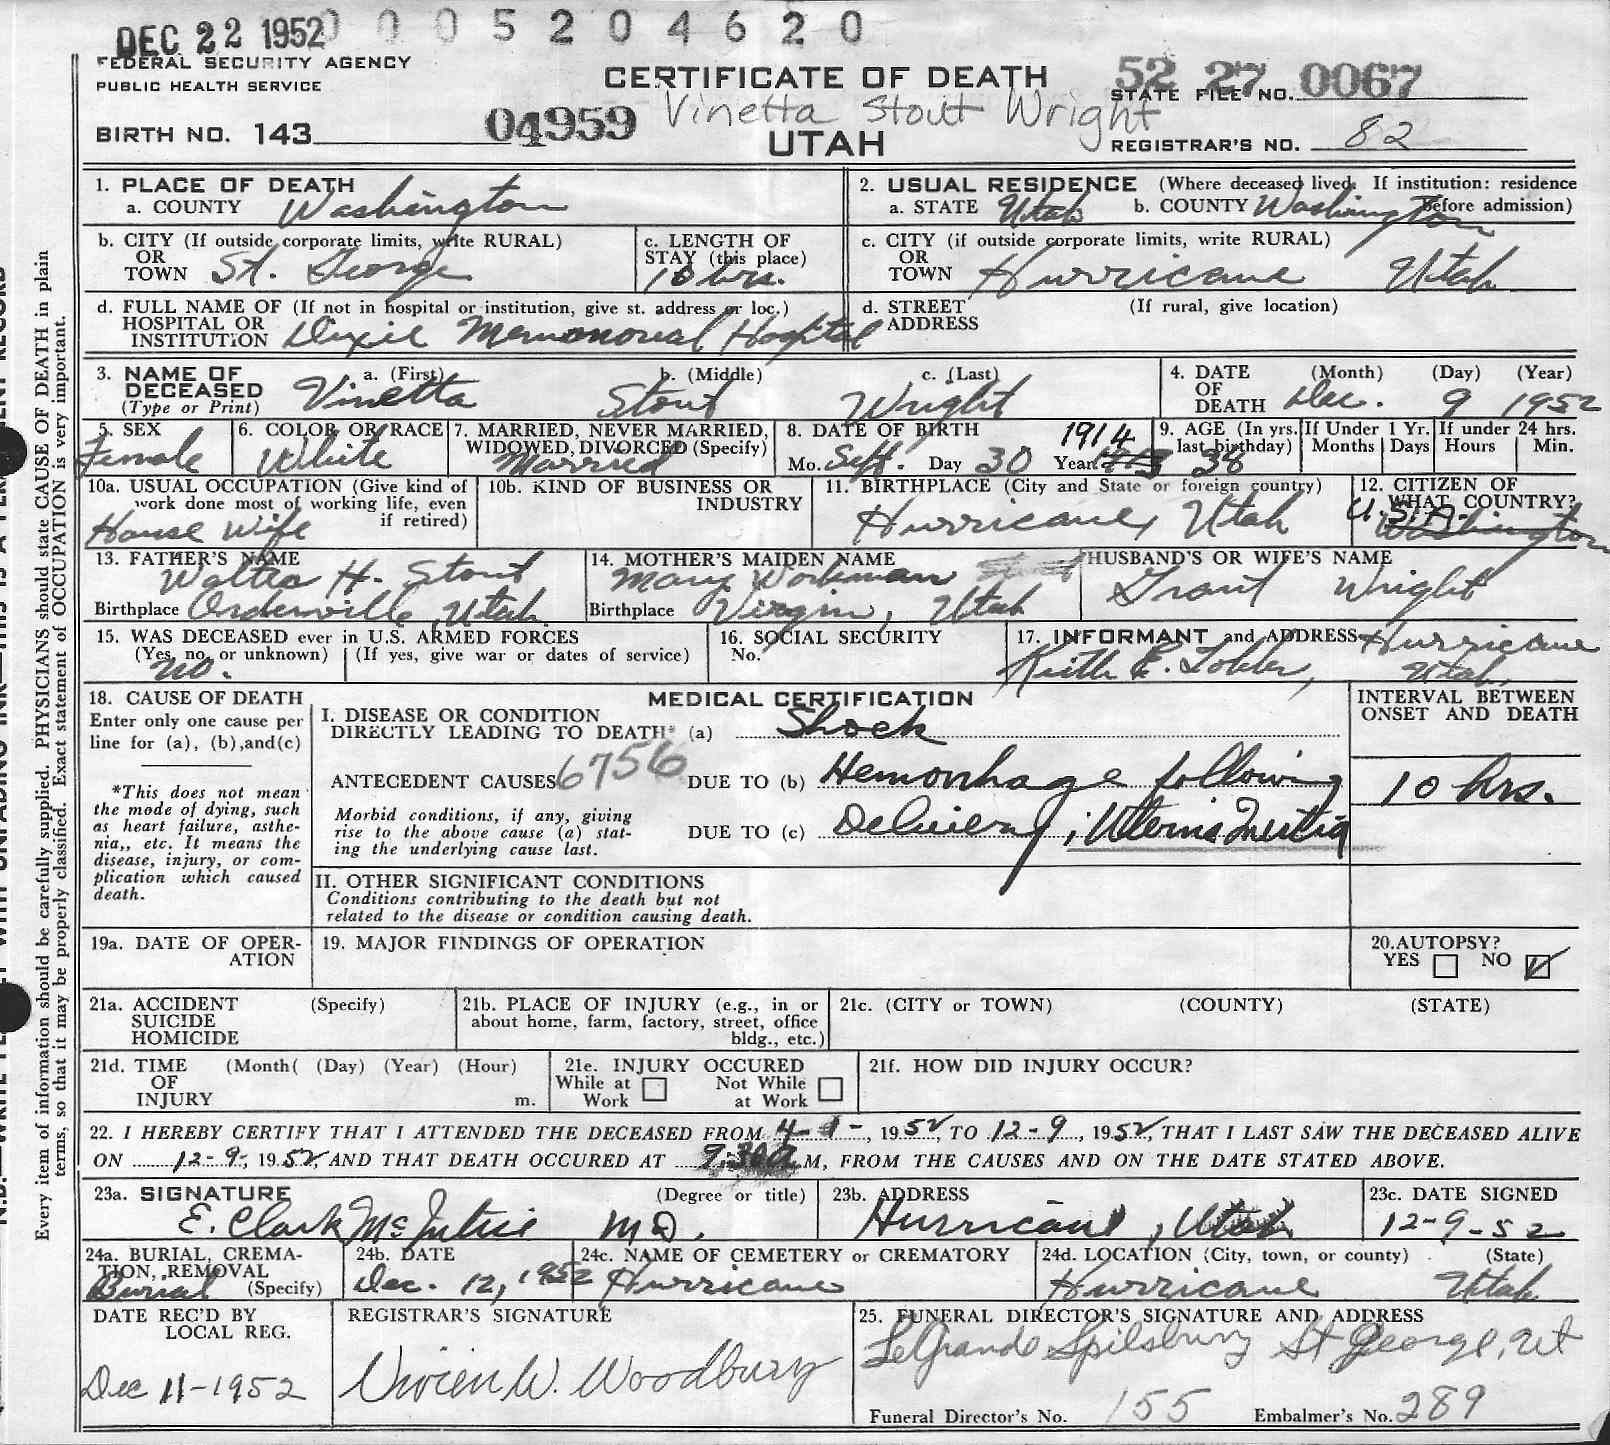 DEC 22 1952 0 0 0 5 2 0 4 6 2 0
FEDERAL SECURITY AGENCY
PUBLIC HEALTH SERVICE
CERTIFICATE OF DEATH
Vinetta Stout Wright
UTAH
52 27 0067
STATE FILE NO.
BIRTH NO. 143 04959
REGISTRAR'S NO. 82
1. PLACE OF DEATH
a. COUNTY Washington
2. USUAL RESIDENCE (Where deceased lived. If institution: residence before admission)
a. STATE Utah b. COUNTY Washington
b. CITY (If outside corporate limits, write RURAL)
OR
TOWN St. George
c. LENGTH OF
STAY (this place)
10 hrs.
c. CITY (if outside corporate limits, write RURAL)
OR
TOWN Hurricane Utah
d. FULL NAME OF (If not in hospital or institution, give st. address or loc.)
HOSPITAL OR
INSTITUTION Dixie Memonorial Hospital
d. STREET (If rural, give location)
ADDRESS
3. NAME OF DECEASED
(Type or Print)
a. (First) b. (Middle) c. (Last)
Vinetta Stout Wright
4. DATE OF DEATH
(Month) (Day) (Year)
Dec. 9 1952
5. SEX
Female
6. COLOR OR RACE
White
7. MARRIED, NEVER MARRIED,
WIDOWED, DIVORCED (Specify)
Married
8. DATE OF BIRTH 1914
Mo. Sept. Day 30 Year
9. AGE (In yrs. last birthday) 38
If Under 1 Yr.
Months Days
If under 24 hrs.
Hours Min.
10a. USUAL OCCUPATION (Give kind of
work done most of working life, even
if retired)
House Wife
10b. KIND OF BUSINESS OR
INDUSTRY
11. BIRTHPLACE (City and State or foreign country)
Hurricane, Utah
12. CITIZEN OF
WHAT COUNTRY?
U.S.A.
Washington
13. FATHER'S NAME
Walter H. Stout
Birthplace Orderville, Utah
14. MOTHER'S MAIDEN NAME
Mary Workman
Birthplace Virgin, Utah
HUSBAND'S OR WIFE'S NAME
Grant Wright
15. WAS DECEASED ever in U.S. ARMED FORCES
(Yes, no, or unknown) (If yes, give war or dates of service)
no.
16. SOCIAL SECURITY
No.
17. INFORMANT and ADDRESS Hurricane
Utah
18. CAUSE OF DEATH
Enter only one cause per
line for (a), (b), and (c)
*This does not mean
the mode of dying, such
as heart failure, asthe-
nia,, etc. It means the
disease, injury, or com-
plication which caused
death.
MEDICAL CERTIFICATION
I. DISEASE OR CONDITION
DIRECTLY LEADING TO DEATH* (a) Shock
ANTECEDENT CAUSES 6756 DUE TO (b) Hemorrhage following
Morbid conditions, if any, giving
rise to the above cause (a) stat-
ing the underlying cause last.
DUE TO (c) Delivery; Uterine Inertia
INTERVAL BETWEEN
ONSET AND DEATH
10 hrs.
II. OTHER SIGNIFICANT CONDITIONS
Conditions contributing to the death but not
related to the disease or condition causing death.
19a. DATE OF OPER-
ATION
19. MAJOR FINDINGS OF OPERATION
20. AUTOPSY?
YES NO
21a. ACCIDENT (Specify)
SUICIDE
HOMICIDE
21b. PLACE OF INJURY (e.g., in or
about home, farm, factory, street, office
bldg., etc.)
21c. (CITY or TOWN) (COUNTY) (STATE)
21d. TIME (Month( (Day) (Year) (Hour)
OF
INJURY m.
21e. INJURY OCCURED
While at Work Not While at Work
21f. HOW DID INJURY OCCUR?
22. I HEREBY CERTIFY THAT I ATTENDED THE DECEASED FROM 4-1-, 1952, TO 12-9, 1952, THAT I LAST SAW THE DECEASED ALIVE
ON 12-9, 1952, AND THAT DEATH OCCURED AT 9:30a M, FROM THE CAUSES AND ON THE DATE STATED ABOVE.
23a. SIGNATURE (Degree or title)
E. Clark McIntire MD.
23b. ADDRESS
Hurricane, Utah
23c. DATE SIGNED
12-9-52
24a. BURIAL, CREMA-
TION, REMOVAL
Burial (Specify)
24b. DATE
Dec. 12, 1952
24c. NAME OF CEMETERY or CREMATORY
Hurricane
24d. LOCATION (City, town, or county) (State)
Hurricane Utah
DATE REC'D BY
LOCAL REG.
Dec 11-1952
REGISTRAR'S SIGNATURE
Vivien W. Woodbury
25. FUNERAL DIRECTOR'S SIGNATURE AND ADDRESS
LeGrande Spilsbury St George, Ut
Funeral Director's No. 155 Embalmer's No. 289
Every item of information should be carefully supplied. PHYSICIANS should state CAUSE OF DEATH in plain
terms, so that it may be properly classified. Exact statement of OCCUPATION is very important.